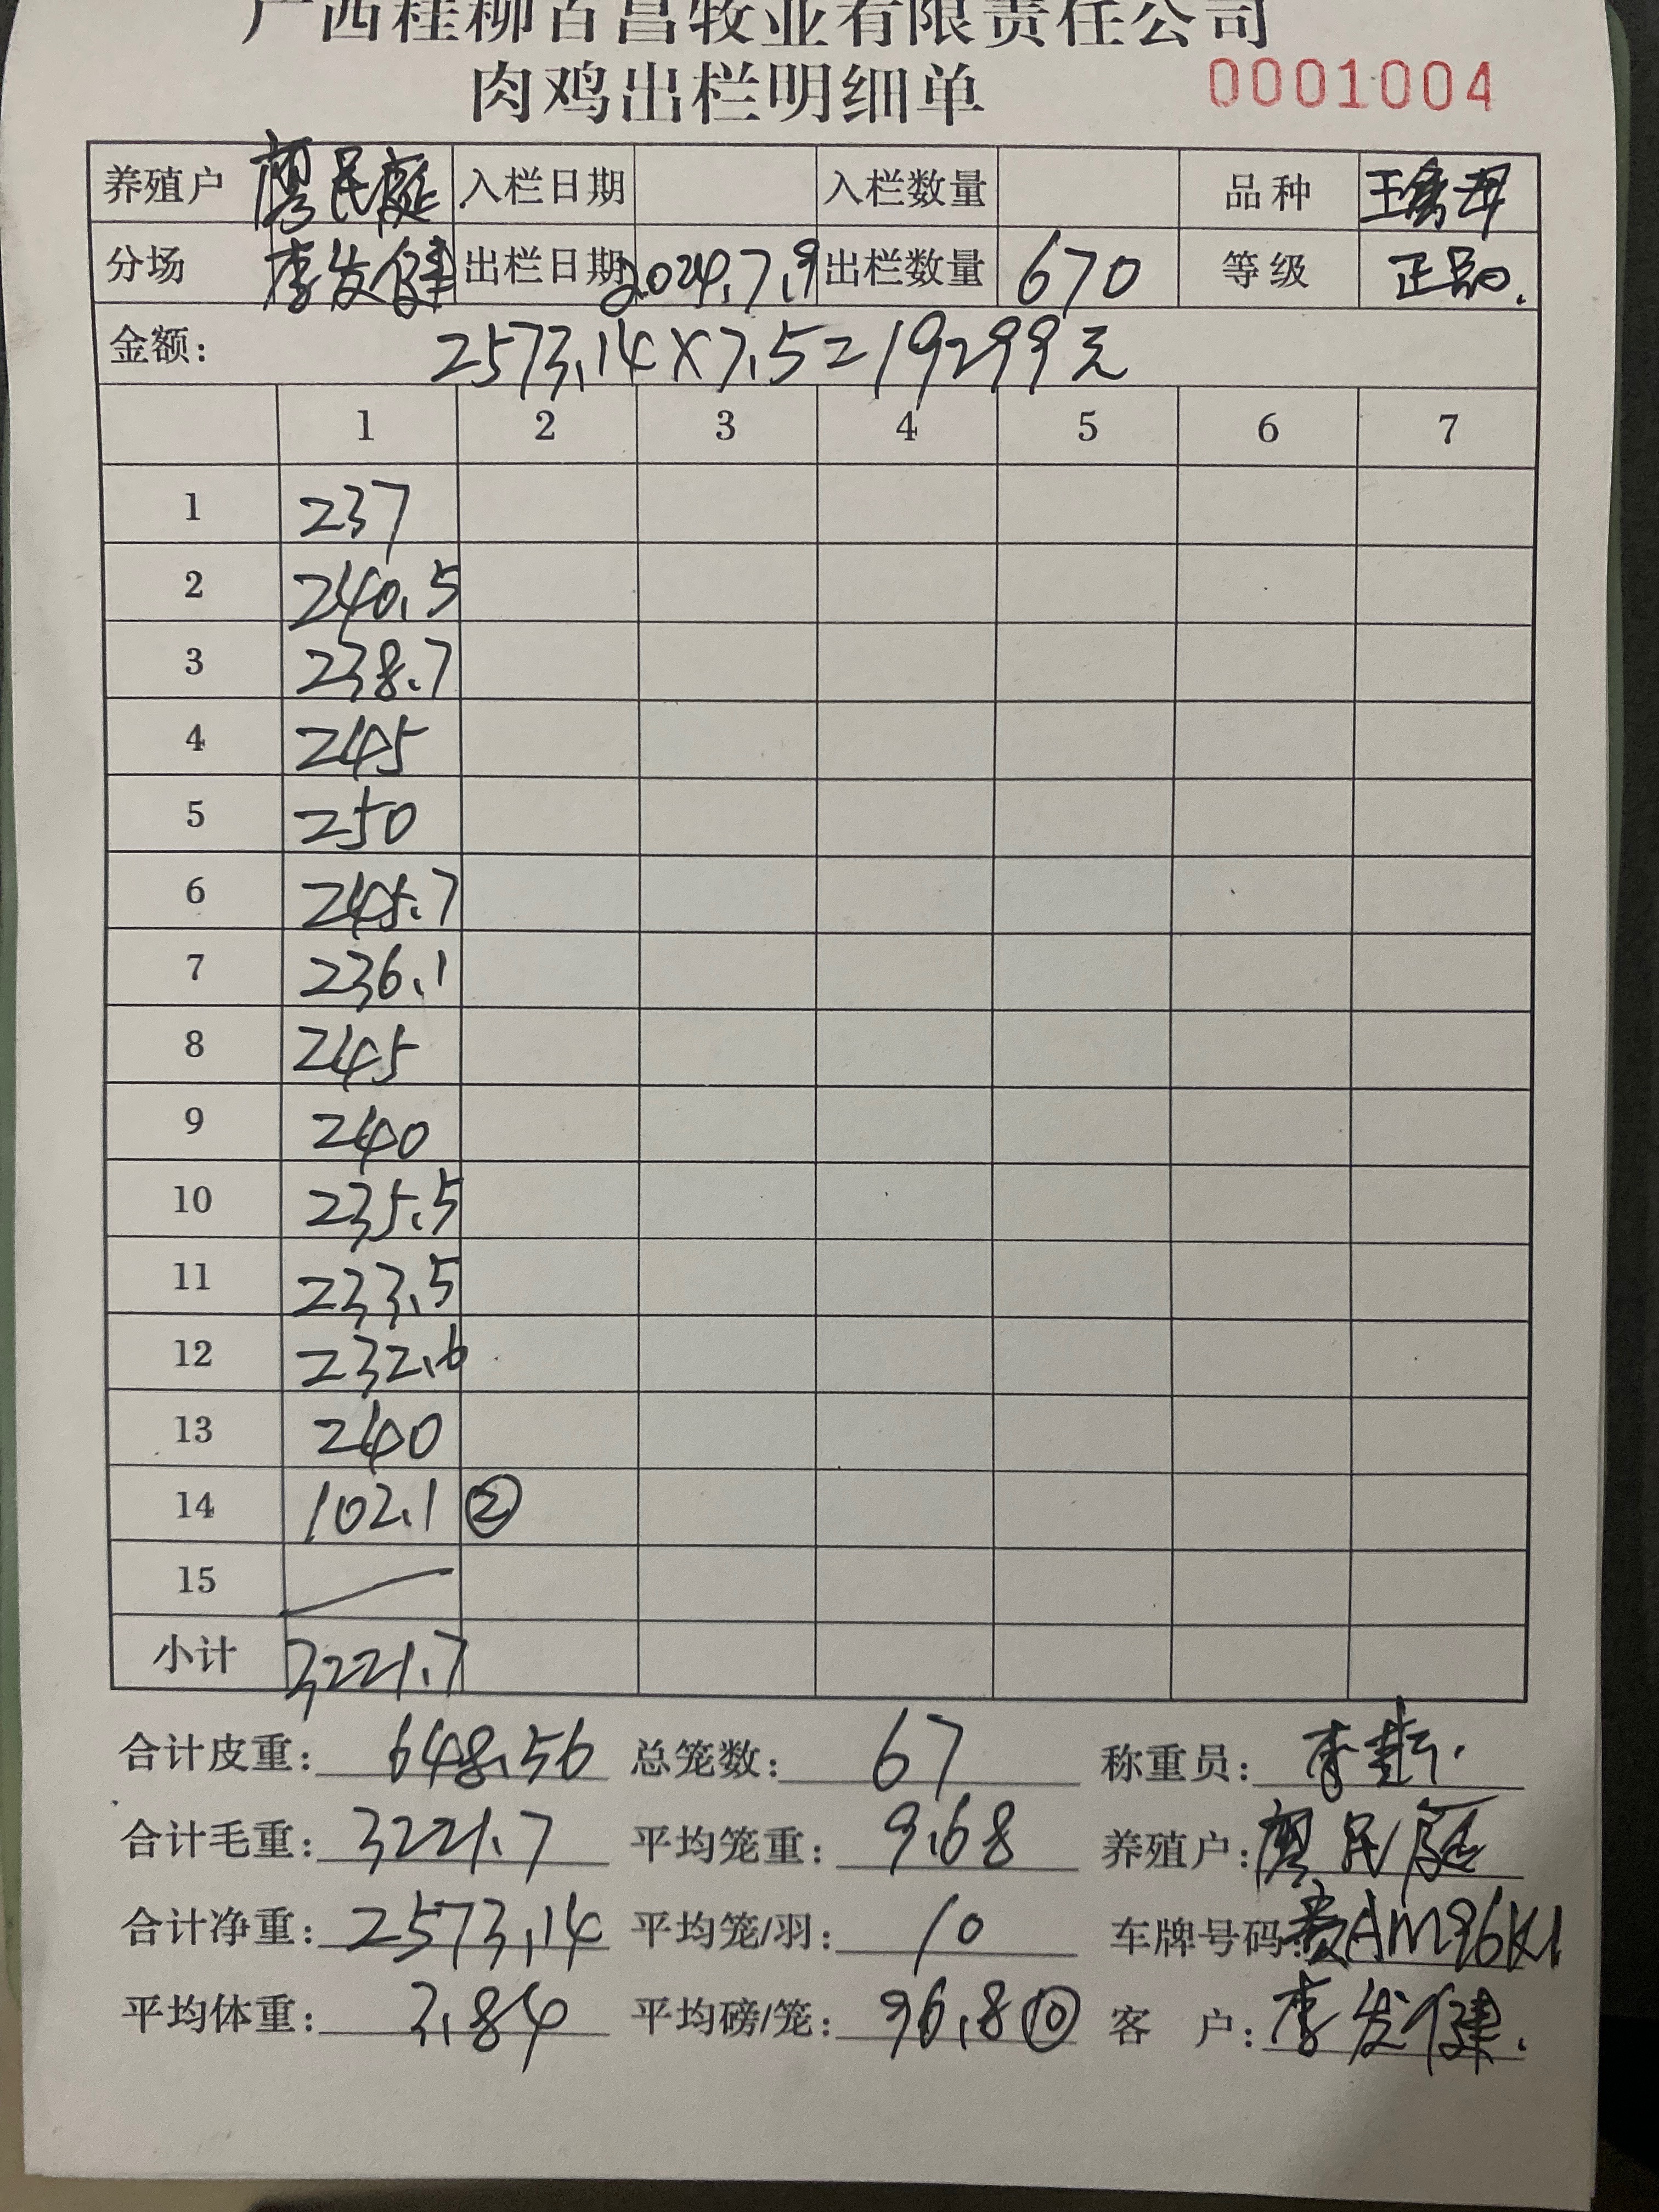 广西桂柳百昌牧业有限责任公司
肉鸡出栏明细单 0001004
养殖户 廖民庭 入栏日期 入栏数量 品种
分场 李发健 出栏日期 2024.7.9 出栏数量 670 等级 正品.
金额: 2573.14×7.5=19299元
1 2 3 4 5 6 7
1 237
2 240.5
3 238.7
4 245
5 250
6 245.7
7 236.1
8 245
9 240
10 235.5
11 233.5
12 232.6
13 240
14 102.1 ②
15
小计 3221.7
合计皮重: 648.56 总笼数: 67 称重员: 李
合计毛重: 3221.7 平均笼重: 9.68 养殖户: 廖民庭
合计净重: 2573.14 平均笼/羽: 10 车牌号码: 贵AM96K1
平均体重: 3.84 平均磅/笼: 96.8⑩ 客户: 李发健.